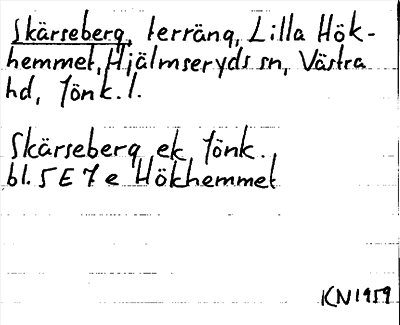 Skärseberg, terräng, Lilla Hök-
hemmet, Hjälmseryds sn, Västra
hd, Jönk. l.
Skärseberg ek Jönk.
bl. 5 E 7 e Hökhemmet
KN 1959